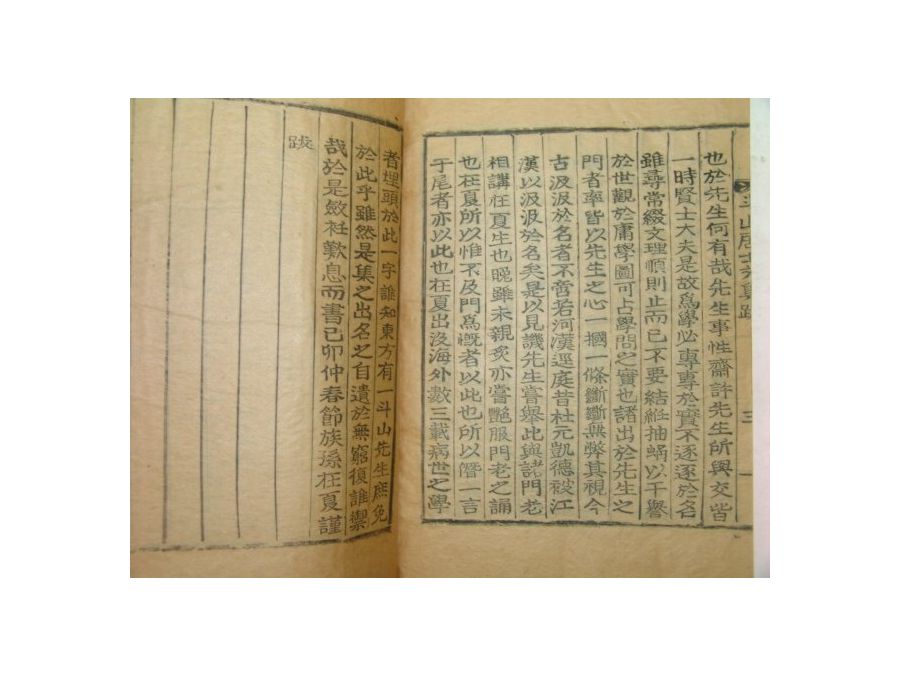 斗山居士文集跋 三
也於先生何有哉先生事性齋許先生所與交皆
一時賢士大夫是故爲學必專專於實不逐逐於名
雖尋常綴文理順則止而已不要結組抽蝸以干譽
於世觀於庸學圖可占學問之實也諸出於先生之
門者率皆以先生之心一摑一條斷斷無弊其視今
古汲汲於名者不啻若河漢逕庭昔杜元凱德被江
漢以汲汲於名矣是以見譏先生嘗舉此與諸門老
相講在夏生也晚雖未親炙亦嘗艶服門老之誦
也在夏所以惟不及門爲慨者以此也所以僭一言
于尾者亦以此也在夏出沒海外數三載病世之學
者埋頭於此一字誰知東方有一斗山先生庶免
於此乎雖然是集之出名之自遺於無窮復誰禦
哉於是斂衽歎息而書己卯仲春節族孫在夏謹
跋